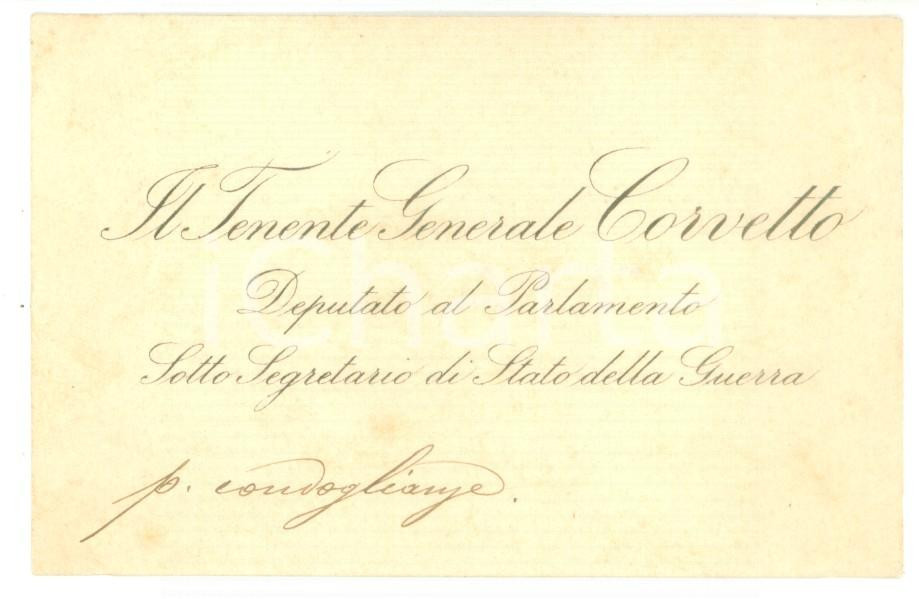 Il Tenente Generale Corvetto
Deputato al Parlamento
Sotto Segretario di Stato della Guerra
p. condoglianze.
iCharta